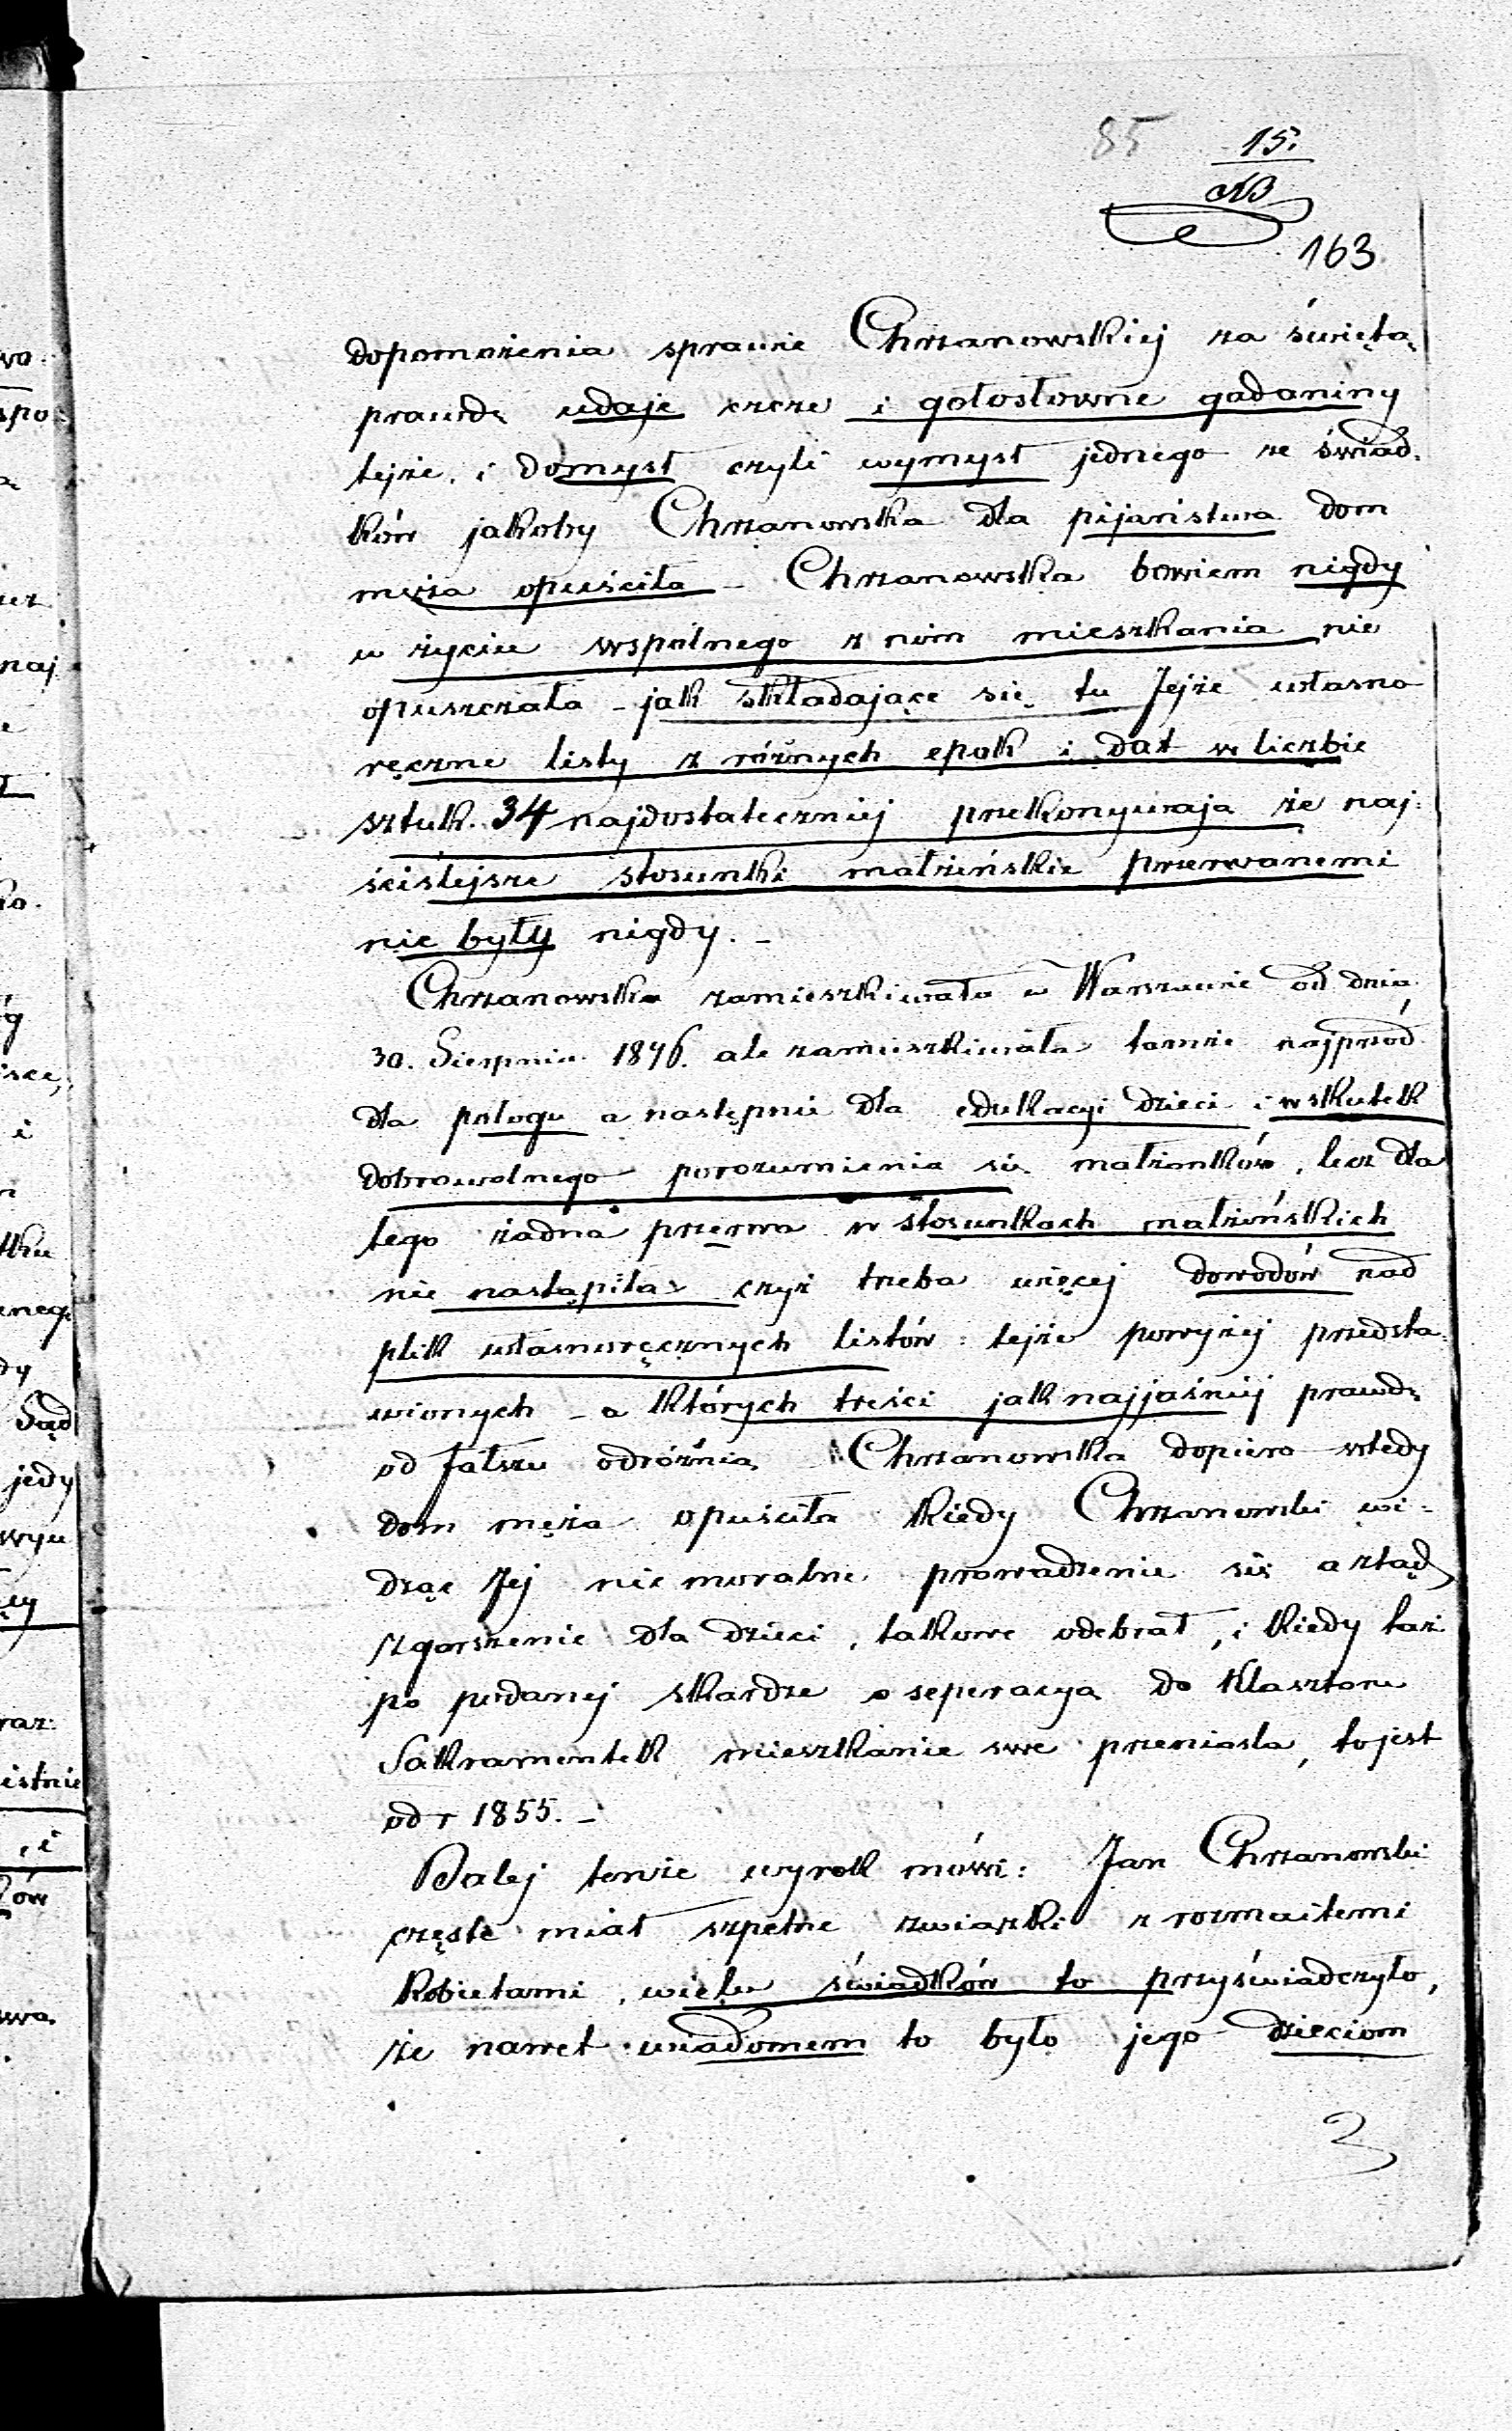 85 15.
NB
163
dopomożenia sprawie Chrzanowskiej za świętą
prawdę udaje czcze i gołosłowne gadaniny
tejże, i domysł czyli wymysł jednego ze świad:
ków jakoby Chrzanowska dla pijaństwa dom
męża opuściła – Chrzanowska bowiem nigdy
w życiu wspólnego z nim mieszkania nie
opuszczała – jak składające się tu Jejże własno
ręczne listy z różnych epok i dat w liczbie
sztuk. 34 najdostateczniej przekonywają że naj:
ściślejsze stosunki małżeńskie przerwanemi
nie były nigdy. –
Chrzanowska zamieszkiwała w Warszawie od dnia
30. Sierpnia 1846. ale zamieszkiwała tamże najprzód
dla połogu a następnie dla edukacyi dzieci i wskutek
dobrowolnego porozumienia się małżonków, lecz dla
tego żadna przerwa w stosunkach małżeńskich
nie nastąpiła czyż trzeba więcej dowodów nad
plik własnoręcznych listów tejże powyżej przedsta:
wionych – a których treści jak najjaśniej prawdę
od fałszu odróżnią – Chrzanowska dopiero wtedy
dom męża opuściła kiedy Chrzanowski wi:
dząc Jej nie moralne prowadzenie się a ztąd
zgorszenie dla dzieci, takowe odebrał, i kiedy taż
po podanej skardze o seperacyą do Klasztoru
Sakramentek mieszkanie swe przeniosła, to jest
od r 1855. –
Dalej tenże wyrok mówi: Jan Chrzanowski
częste miał szpetne związki z rozmaitemi
kobietami, wielu świadków to przyświadczyło,
że nawet wiadomem to było jego dzieciom